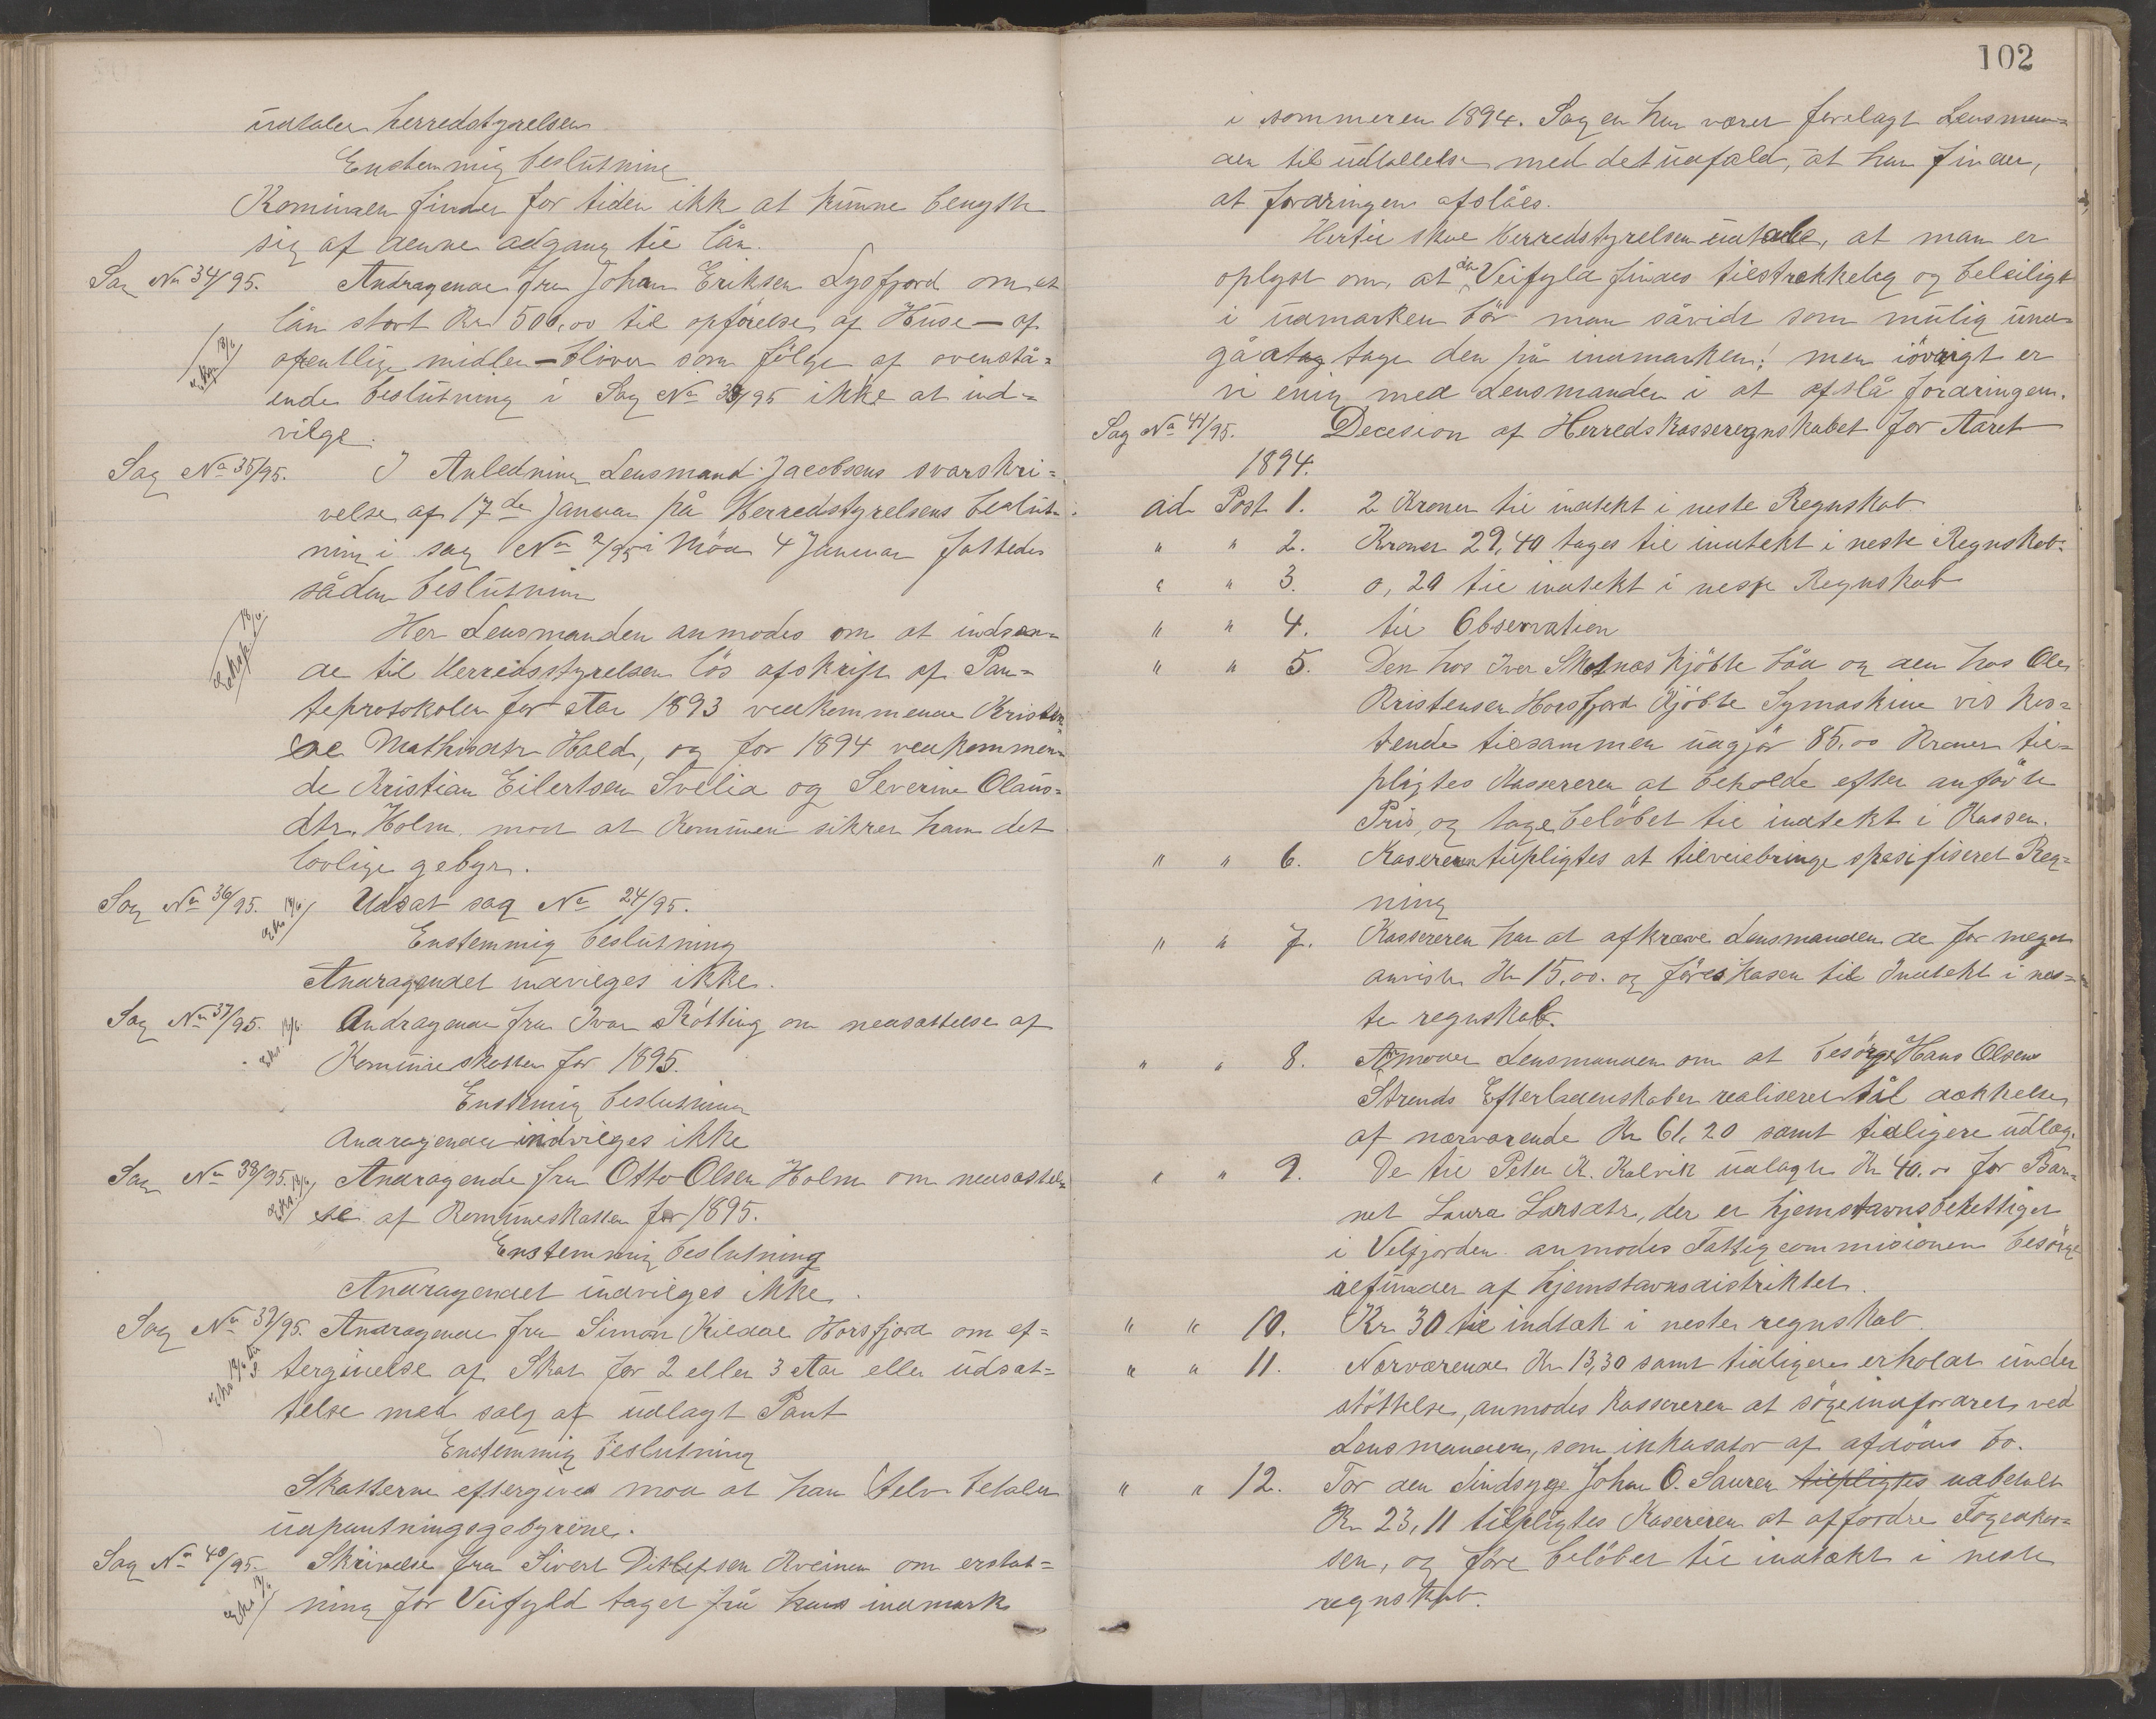 udtaler herredstyrelsen
Enstemmig beslutning
Komunen finder for tiden ikk at kunne benytte
sig af denne adgang til lån.
Sag No 34/95. Andragende fra Johan Eriksen Lysfjord om et
lån stort Kr 500,00 til opförelse af Huse – af
ofentlige midler – bliver som fölge af ovenstå=
Eksp 18/6
ende beslutning i Sag No 33/95 ikke at ind=
vilge.
Sag No 35/95. I Anledning Lensmand Jacobsens svarskri=
velse af 17de Januar på Herredstyrelsens beslut=
ning i sag No 2/95 i Möde 4 Januar fattedes
sådan beslutning
Eksp 18/6.
Her Lensmanden anmodes om at indsen=
de til Herredsstyrelsen lös afskrift af Pan=
teprotokolen for Aar 1893 vedkommende Kristen
Mathisdtr Hald, og for 1894 vedkommen=
de Kristian Eilertsen Svelia og Severine Olaus=
dtr. Holm mod at Komunen sikrer ham det
lovlige gebyr.
Sag No 36/95. Eks 18/6 Udsat sag No 24/95.
Enstemmig beslutning
Andragendet indvilges ikke.
Sag No 37/95. Eks. 18/6. Andragende fra Ivar Rötting om nedsættelse af
Komuneskatten for 1895.
Enstemig beslutning
Andragendet indvilges ikke
Sag No 38/95. Eks. 18/6 Andragende fra Otto Olsen Holm om nedsættel=
se af Komuneskatten for 1895.
Enstemmig beslutning
Andragendet indvilges ikke.
Sag No 39/95. Andragende fra Simon Kildal Horsfjord om ef=
Eks 18/6 til
tergivelse af Skat for 2 eller 3 Aar eller udsæt=
telse med salg af udlagt Pant
Enstemmig beslutning
Skatterne eftergives mod at han selv betaler
udpantningsgebyrene.
Sag No 40/95. Skrivelse fra Sivert Ditlefsen Kveinen om erstat=
Eks 18/6
ning for Veifyld taget frå hans indmark
102
i sommeren 1894. Sagen har været forelagt Lensman=
den til udtallelse med det udfald, at han finder,
at fordringen afslåes.
Hertil skal Herredstyrelsen udtale, at man er
oplyst om, at der Veifyld findes tilstrækkelig og beleiligt
i udmarken bör man såvidt som mulig und=
gå at tage den på indmarken; men iövrigt er
vi enig med Lensmanden i at afslå fordringen.
Sag No 41/95. Decesion af Herredskasseregnskabet for Aaret
1894.
ad Post 1. 2 Kroner til indtekt i neste Regnskab
" " 2. Kroner 29,40 tages til indtekt i neste Regnskab.
" " 3. 0,20 til indtekt i neste Regnskab
" " 4. til Observation
" " 5. Den hos Iver Skotnes kjöbte båd og den hos Ole
Kristensen Horsfjord Kjöbte Symaskine vis kos=
tende tilsammen udgjör 85,00 Kroner til=
pligtes Kassereren at beholde efter anförte
Pris, og tage belöbet til indtekt i Kassen.
" " 6. Kasereren tilpligtes at tilveiebringe spesifiseret Reg=
ning
" " 7. Kassereren har at afkræve Lensmanden de for meget
anviste Kr 15,00. og föres kasen til Indtekt i nes=
te regnskab.
" " 8. Anmoder Lensmanden om at besörge Hans Olsens
Strands Efterladenskaber realiseret til dækkelse
af nærværende Kr 61,20 samt tidligere udlæg.
" " 9. De til Peter K. Kalvik udlagte Kr 40.00 for Bar=
net Laura Larsdtr, der er hjemstavnsberettiget
i Velfjorden anmodes Fattigcommisionen besörge
refunder af hjemstavnsdistriktet.
" " 10. Kr 30 til indtæk i neste regnskab.
" " 11. Nærværende Kr 13,30 samt tidligere erholdt under
stöttelse, anmodes Kassereren at söge indfordret ved
Lensmanden, som inkasator af afdödes bo.
" " 12. For den Sindsyge Johan O. Sauren tilpligtes udbetalt
Kr 23,11 tilpligtes Kasereren at affordre Fogedkas=
sen, og före belöbet til indtækt i neste
regnskab.